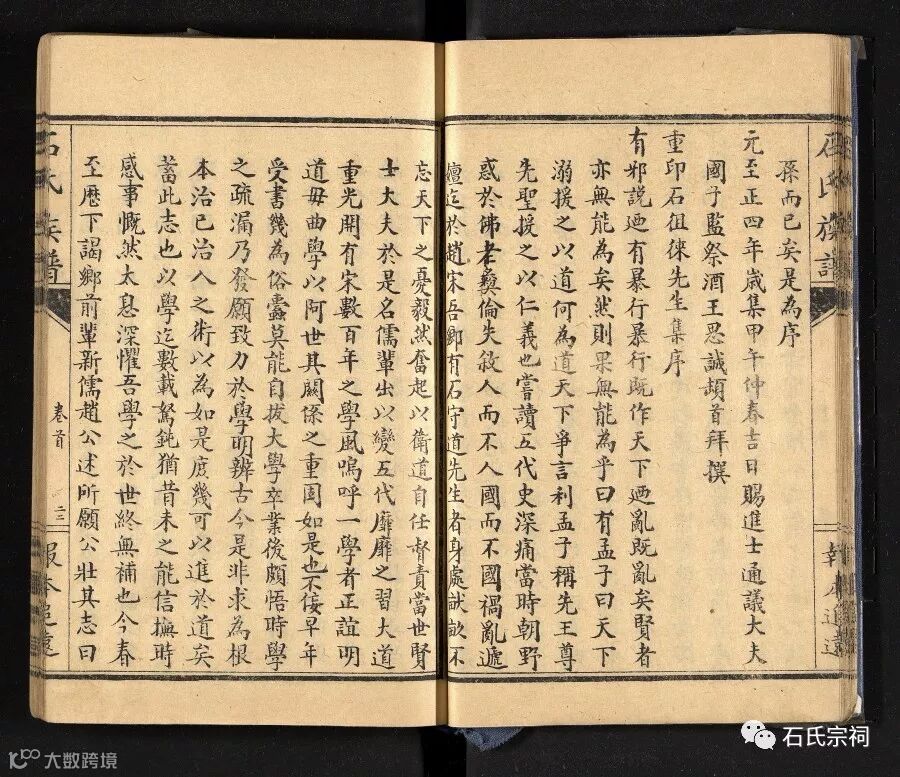 石氏族譜
報本追遠
孫而已矣是為序
元至正四年歲集甲午仲春吉日賜進士通議大夫
國子監祭酒王思誠頓首拜撰
重印石徂徠先生集序
有邪說廼有暴行暴行既作天下廼亂既亂矣賢者
亦無能為矣然則果無能為乎曰有孟子曰天下
溺援之以道何為道天下爭言利孟子稱先王尊
先聖援之以仁義也嘗讀五代史深痛當時朝野
惑於佛老彝倫失敘人而不人國而不國禍亂遞
嬗迄於趙宋吾鄉有石守道先生者身處畎畝不
忘天下之憂毅然奮起以衛道自任督責當世賢
士大夫於是名儒輩出以變五代靡靡之習大道
重光開有宋數百年之學風嗚呼一學者正誼明
道毋曲學以阿世其關係之重固如是也不佞早年
受書幾為俗囊莫能自拔大學卒業後頗悟時學
之疏漏乃發願致力於學明辨古今是非求為根
本治已治人之術以為如是庶幾可以進於道矣
蓄此志也以學迄數載駑鈍猶昔未之能信撫時
感事慨然太息深懼吾學之於世終無補也今春
至歷下謁鄉前輩新儒趙公述所願公壯其志曰
石氏族譜
卷首
三
報本追遠
石氏宗祠
大数跨境